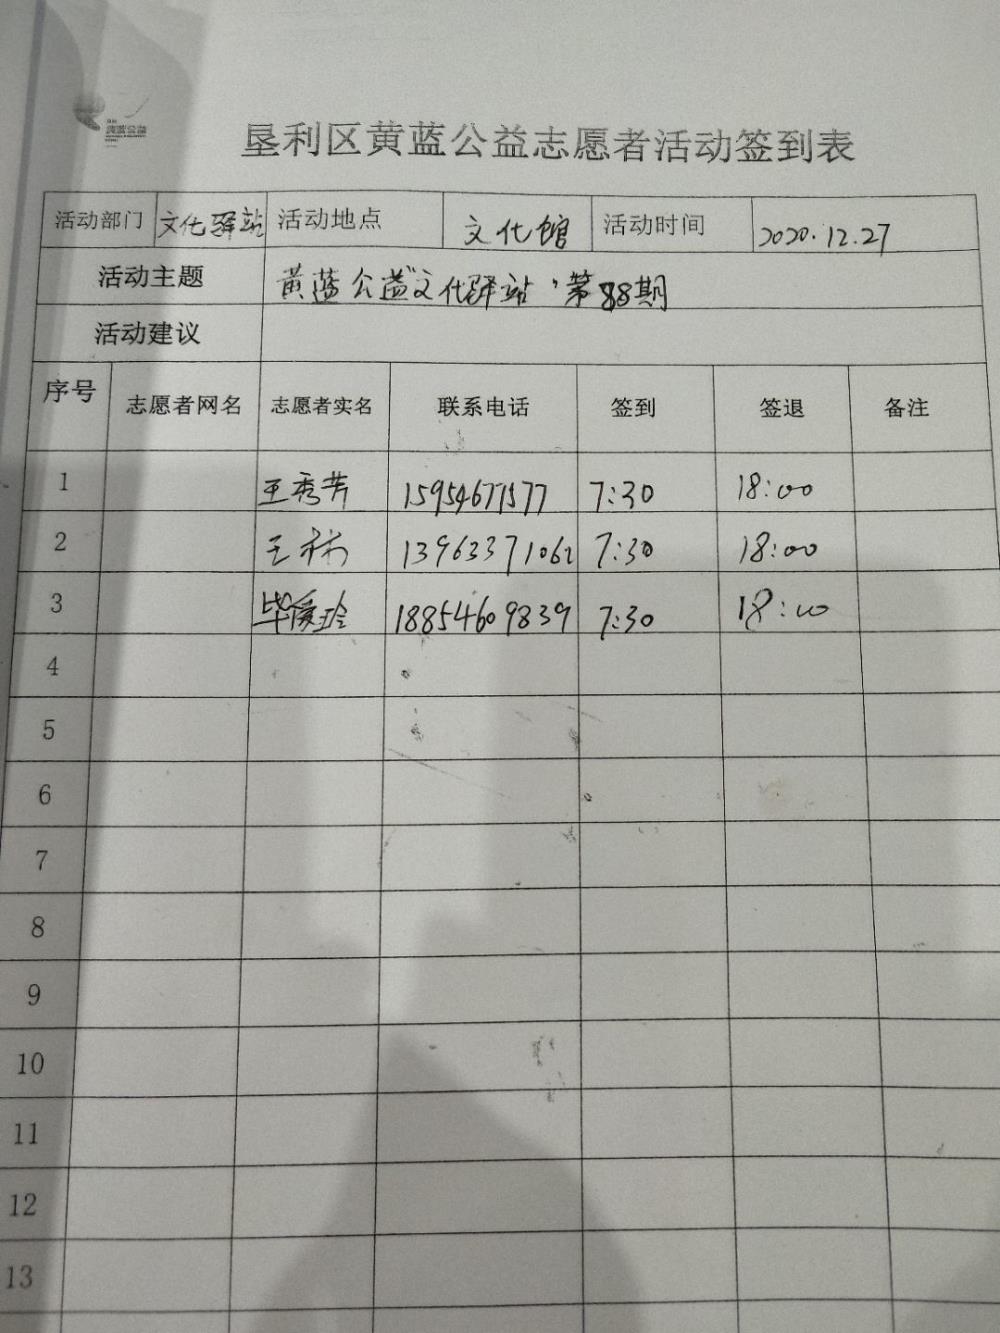 黄蓝公益
垦利区黄蓝公益志愿者活动签到表
活动部门 文化驿站 活动地点 文化馆 活动时间 2020.12.27
活动主题 黄蓝公益"文化驿站"第88期
活动建议
序号 志愿者网名 志愿者实名 联系电话 签到 签退 备注
1 王秀芳 15954677577 7:30 18:00
2 王 13963371062 7:30 18:00
3 毕爱玲 18854609839 7:30 18:00
4
5
6
7
8
9
10
11
12
13